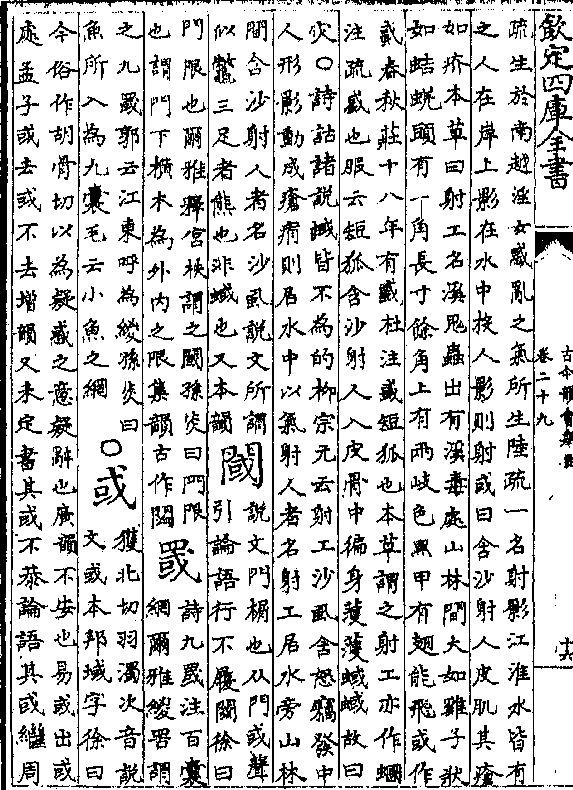 欽定四庫全書
古今韻會舉要
卷二十九
十六
疏生於南越淫女惑亂之氣所生陸疏一名射影江淮水皆有
之人在岸上影在水中投人影則射或曰含沙射人皮肌其瘡
如疥本草曰射工名溪鬼蟲出有溪毒處山林間大如雞子狀
如蛣蜣頭有一角長寸餘角上有兩岐色黑甲有翅能飛或作
蜮春秋莊十八年有蜮杜注蜮短狐也本草謂之射工亦作蟈
注疏蜮也服云短狐含沙射人入皮骨中徧身濩濩蜮蜮故曰
災○詩詁諸說蜮皆不為的柳宗元云射工沙虱含怒竊發中
人形影動成瘡痏則居水中以氣射人者名射工居水旁山林
間含沙射人者名沙虱說文所謂
似鼈三足者熊也非蜮也又本韻
閾
說文門榍也从門或聲
引論語行不履閾徐曰
門限也爾雅釋宮柣謂之閾孫炎曰門限
也謂門下橫木為外內之限集韻古作䦗
罭
詩九罭注百囊
網爾雅緵罟謂
之九罭郭云江東呼為緵孫炎曰
魚所入為九囊毛云小魚之網
○或
獲北切羽濁次音說
文或本邦域字徐曰
今俗作胡骨切以為疑惑之意疑辭也廣韻不安也易或出或
處孟子或去或不去增韻又未定書其或不恭論語其或繼周